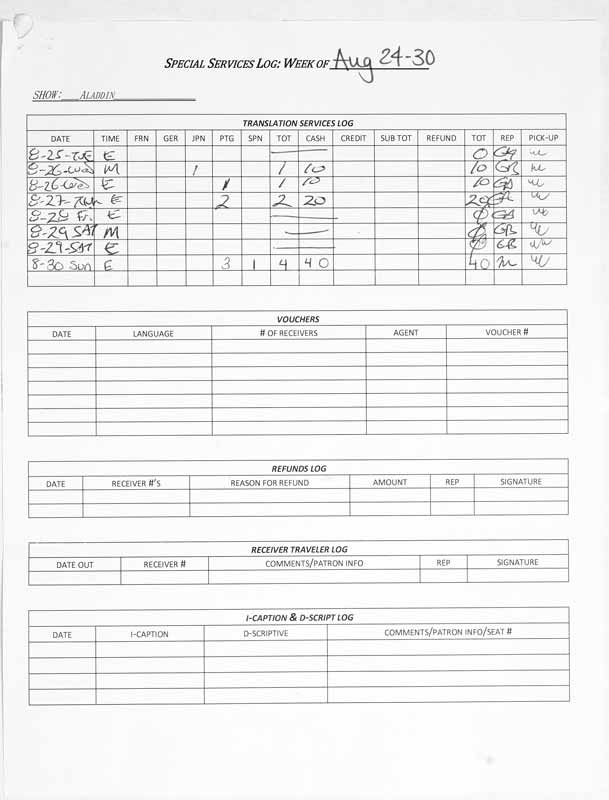 SPECIAL SERVICES LOG: WEEK OF Aug 24-30
SHOW: ALADDIN
TRANSLATION SERVICES LOG
DATE TIME FRN GER JPN PTG SPN TOT CASH CREDIT SUB TOT REFUND TOT REP PICK-UP
8-25-TUE E 0 GB
8-26-Wed M 1 1 10 10 GB
8-26-Wed E 1 1 10 10 GB
8-27-Thur E 2 2 20 20 GB
8-28 Fri. E 0 GB
8-29 SAT M 0 GB
8-29-SAT E 0 GB
8-30 Sun E 3 1 4 40 40
VOUCHERS
DATE LANGUAGE # OF RECEIVERS AGENT VOUCHER #
REFUNDS LOG
DATE RECEIVER #'S REASON FOR REFUND AMOUNT REP SIGNATURE
RECEIVER TRAVELER LOG
DATE OUT RECEIVER # COMMENTS/PATRON INFO REP SIGNATURE
I-CAPTION & D-SCRIPT LOG
DATE I-CAPTION D-SCRIPTIVE COMMENTS/PATRON INFO/SEAT #